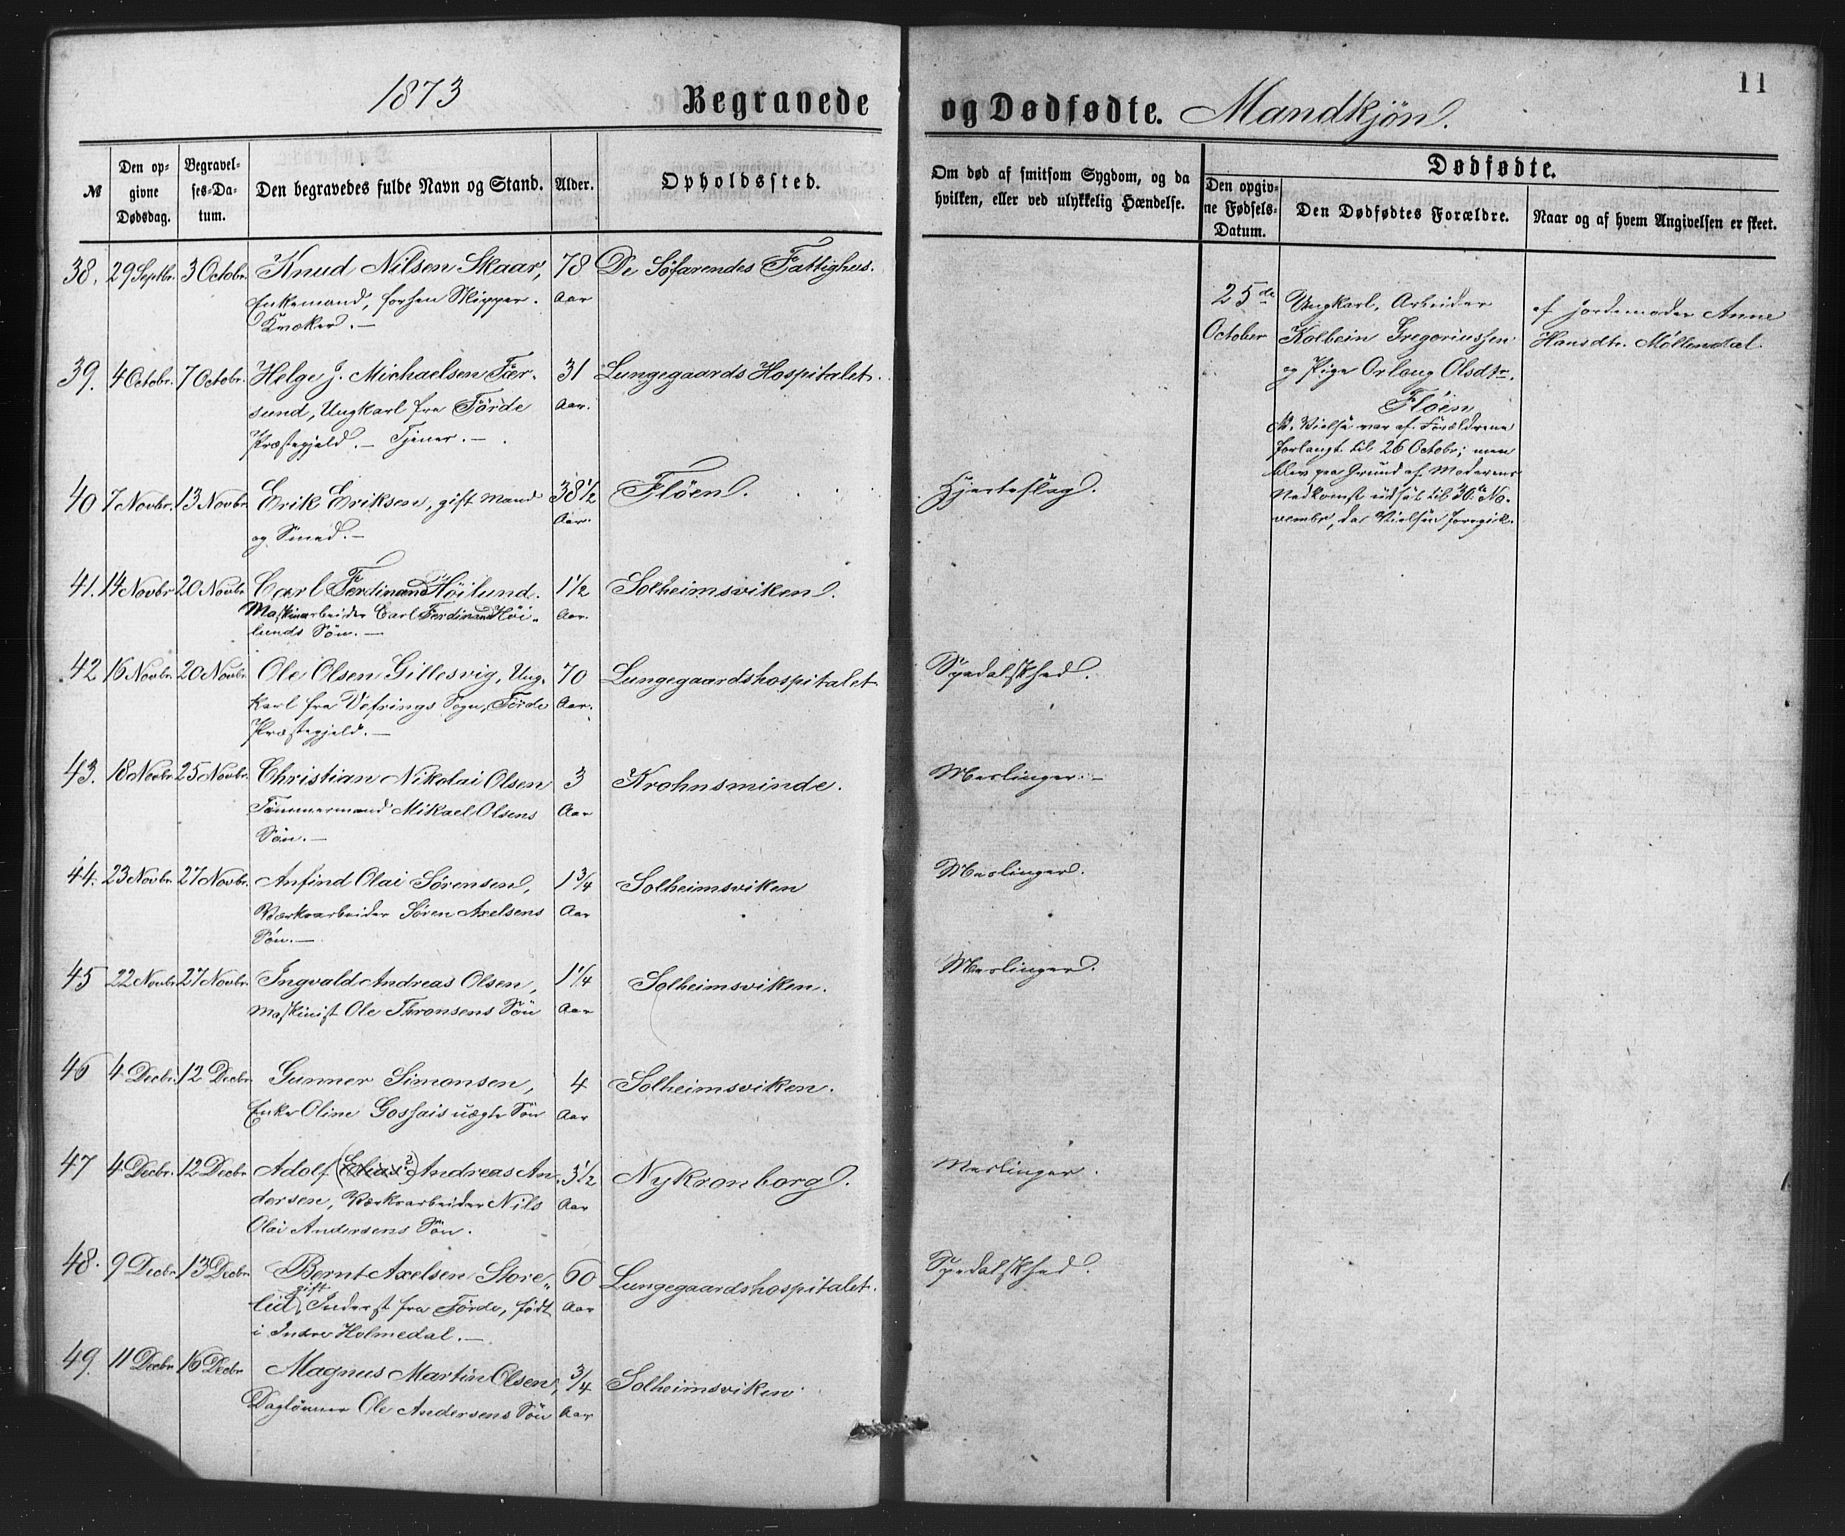 1873 Begravede og Dødfødte. Mandkjøn. 11
№ Den opgivne Dødsdag. Begravelses-Datum. Den begravedes fulde Navn og Stand. Alder. Opholdssted. Om død af smitsom Sygdom, og da hvilken, eller ved ulykkelig Hændelse. Dødfødte. Den opgivne Fødsels-Datum. Den Dødfødtes Forældre. Naar og af hvem Angivelsen er skeet.
38. 29 Septbr. 3 Octobr. Knud Nilsen Skaar, 78 De Søfarendes Fattighus.
Enkemand, forhen Skipper. Aar
Kvæker. —
25de Ungkarl, Arbeider af Jordemoder Anne
October Kolbein Gregoriussen Hansdtr. Møllendal.
og Pige Orlaug Olsdtr.
Flöen
N. Vielse var af Forældrene
forlangt til 26 Octobr; men
blev paa Grund af Moderens
Nedkomst udsat til 30te No-
vembr, da Vielsen foregik.
39. 4 Octobr. 7 Octobr. Helge J. Michaelsen Fær- 31 Lungegaards Hospitalet.
sund, Ungkarl fra Förde Aar.
Præstegjeld. — Tjener. —
40 7 Novbr. 13 Novbr. Erik Eriksen, gift Mand 38½ Flöen. Hjerteslag.
og Smed. — Aar.
41. 14 Novbr 20 Novbr Carl Ferdinand Höilund. 1½ Solheimsviken.
Maskinarbeider Carl Ferdinand Höi- Aar.
lunds Sön. —
42 16 Novbr. 20 Novbr. Ole Olsen Gillesvig, Ung- 70 Lungegaardshospitalet Spedalskhed.
karl fra Vefrings Sogn, Förde Aar.
Præstegjeld. —
43. 18 Novbr. 25 Novbr. Christian Nikolai Olsen 3 Krohnsminde. Meslinger. —
Tömmermand Mikael Olsens Aar
Sön. —
44. 23 Novbr. 27 Novbr. Anfind Olai Sörensen, 1¾ Solheimsviken Meslinger.
Værksarbeider Sören Axelsens Aar
Sön. —
45 22 Novbr 27 Novbr. Ingvald Andreas Olsen, 1¼ Solheimsviken. Meslinger.
Maskinist Ole Thronsens Sön Aar
46 4 Decbr. 12 Decbr. Gunner Simonsen, 4 Solheimsviken.
Enke Oline Gossais uægte Sön Aar
47 4 Decbr. 12 Decbr Adolf (Elias?) Andreas An- 3½ Nykronborg. Meslinger.
dersen, Værksarbeider Nils Aar
Olai Andersens Sön.
48. 9 Decbr. 13 Decbr Bernt Axelsen Store- 60 Lungegaardshospitalet. Spedalskhed.
lid, gift Inderst fra Förde, født Aar
i Indre Holmedal. —
49. 11 Decbr. 16 Decbr Magnus Martin Olsen, ¾ Solheimsviken
Daglönner Ole Andersens Sön Aar